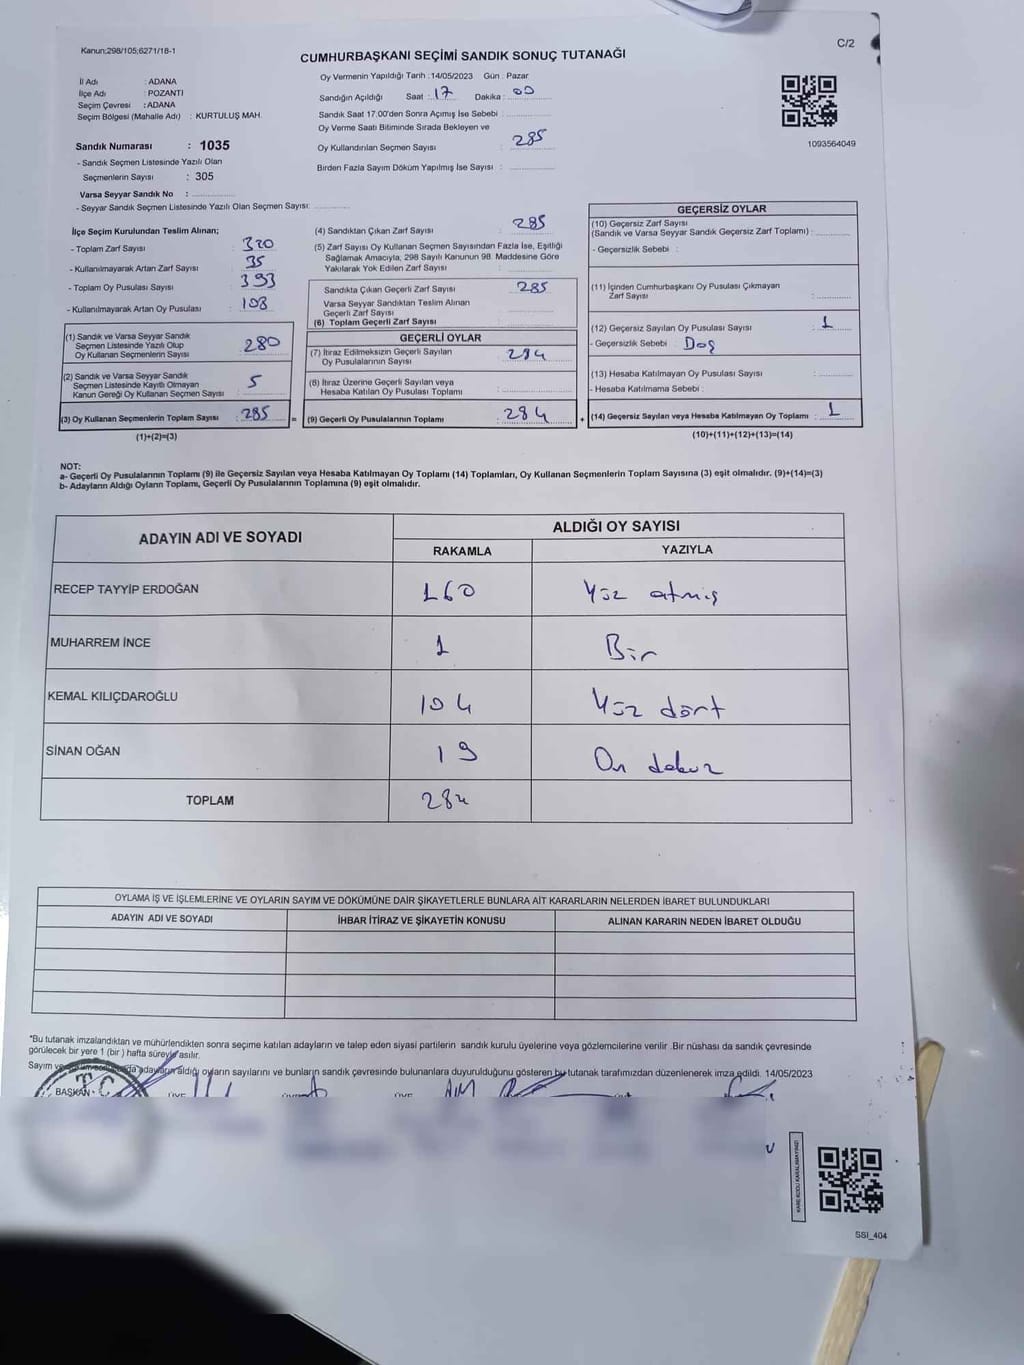 Kanun:298/105;6271/18-1
C/2
CUMHURBAŞKANI SEÇİMİ SANDIK SONUÇ TUTANAĞI
İl Adı : ADANA
İlçe Adı : POZANTI
Seçim Çevresi : ADANA
Seçim Bölgesi (Mahalle Adı) : KURTULUŞ MAH.
Sandık Numarası : 1035
- Sandık Seçmen Listesinde Yazılı Olan
Seçmenlerin Sayısı : 305
Varsa Seyyar Sandık No :
- Seyyar Sandık Seçmen Listesinde Yazılı Olan Seçmen Sayısı:
Oy Vermenin Yapıldığı Tarih :14/05/2023 Gün : Pazar
Sandığın Açıldığı Saat : 17 Dakika : 00
Sandık Saat 17:00'den Sonra Açımış İse Sebebi :
Oy Verme Saati Bitiminde Sırada Bekleyen ve
Oy Kullandırılan Seçmen Sayısı : 285
Birden Fazla Sayım Döküm Yapılmış İse Sayısı :
1093564049
İlçe Seçim Kurulundan Teslim Alınan;
- Toplam Zarf Sayısı : 320
- Kullanılmayarak Artan Zarf Sayısı : 35
- Toplam Oy Pusulası Sayısı : 393
- Kullanılmayarak Artan Oy Pusulası : 108
(1) Sandık ve Varsa Seyyar Sandık
Seçmen Listesinde Yazılı Olup
Oy Kullanan Seçmenlerin Sayısı : 280
(2) Sandık ve Varsa Seyyar Sandık
Seçmen Listesinde Kayıtlı Olmayan
Kanun Gereği Oy Kullanan Seçmen Sayısı : 5
(3) Oy Kullanan Seçmenlerin Toplam Sayısı : 285 =
(1)+(2)=(3)
(4) Sandıktan Çıkan Zarf Sayısı : 285
(5) Zarf Sayısı Oy Kullanan Seçmen Sayısından Fazla İse, Eşitliği
Sağlamak Amacıyla, 298 Sayılı Kanunun 98. Maddesine Göre
Yakılarak Yok Edilen Zarf Sayısı :
Sandıkta Çıkan Geçerli Zarf Sayısı : 285
Varsa Seyyar Sandıktan Teslim Alınan
Geçerli Zarf Sayısı :
(6) Toplam Geçerli Zarf Sayısı :
GEÇERLİ OYLAR
(7) İtiraz Edilmeksizin Geçerli Sayılan
Oy Pusulalarının Sayısı : 284
(8) İtiraz Üzerine Geçerli Sayılan veya
Hesaba Katılan Oy Pusulası Toplamı :
(9) Geçerli Oy Pusulalarının Toplamı : 284 +
GEÇERSİZ OYLAR
(10) Geçersiz Zarf Sayısı
(Sandık ve Varsa Seyyar Sandık Geçersiz Zarf Toplamı) :
- Geçersizlik Sebebi :
(11) İçinden Cumhurbaşkanı Oy Pusulası Çıkmayan
Zarf Sayısı :
(12) Geçersiz Sayılan Oy Pusulası Sayısı : 1
- Geçersizlik Sebebi :
(13) Hesaba Katılmayan Oy Pusulası Sayısı :
- Hesaba Katılmama Sebebi :
(14) Geçersiz Sayılan veya Hesaba Katılmayan Oy Toplamı : 1
(10)+(11)+(12)+(13)=(14)
NOT:
a- Geçerli Oy Pusulalarının Toplamı (9) ile Geçersiz Sayılan veya Hesaba Katılmayan Oy Toplamı (14) Toplamları, Oy Kullanan Seçmenlerin Toplam Sayısına (3) eşit olmalıdır. (9)+(14)=(3)
b- Adayların Aldığı Oyların Toplamı, Geçerli Oy Pusulalarının Toplamına (9) eşit olmalıdır.
ADAYIN ADI VE SOYADI ALDIĞI OY SAYISI
RAKAMLA YAZIYLA
RECEP TAYYİP ERDOĞAN 160 Yüz atmış
MUHARREM İNCE 1 Bir
KEMAL KILIÇDAROĞLU 104 Yüz dört
SİNAN OĞAN 19 On dokuz
TOPLAM 284
OYLAMA İŞ VE İŞLEMLERİNE VE OYLARIN SAYIM VE DÖKÜMÜNE DAİR ŞİKAYETLERLE BUNLARA AİT KARARLARIN NELERDEN İBARET BULUNDUKLARI
ADAYIN ADI VE SOYADI İHBAR İTİRAZ VE ŞİKAYETİN KONUSU ALINAN KARARIN NEDEN İBARET OLDUĞU
*Bu tutanak imzalandıktan ve mühürlendikten sonra seçime katılan adayların ve talep eden siyasi partilerin sandık kurulu üyelerine veya gözlemcilerine verilir .Bir nüshası da sandık çevresinde
görülecek bir yere 1 (bir ) hafta süreyle asılır.
Sayım ve adayların aldığı oyların sayılarını ve bunların sandık çevresinde bulunanlara duyurulduğunu gösteren bu tutanak tarafımızdan düzenlenerek imza edildi. 14/05/2023
T.C
BAŞKAN
KARE KODU KARALAMAYINIZ!
SSI_404